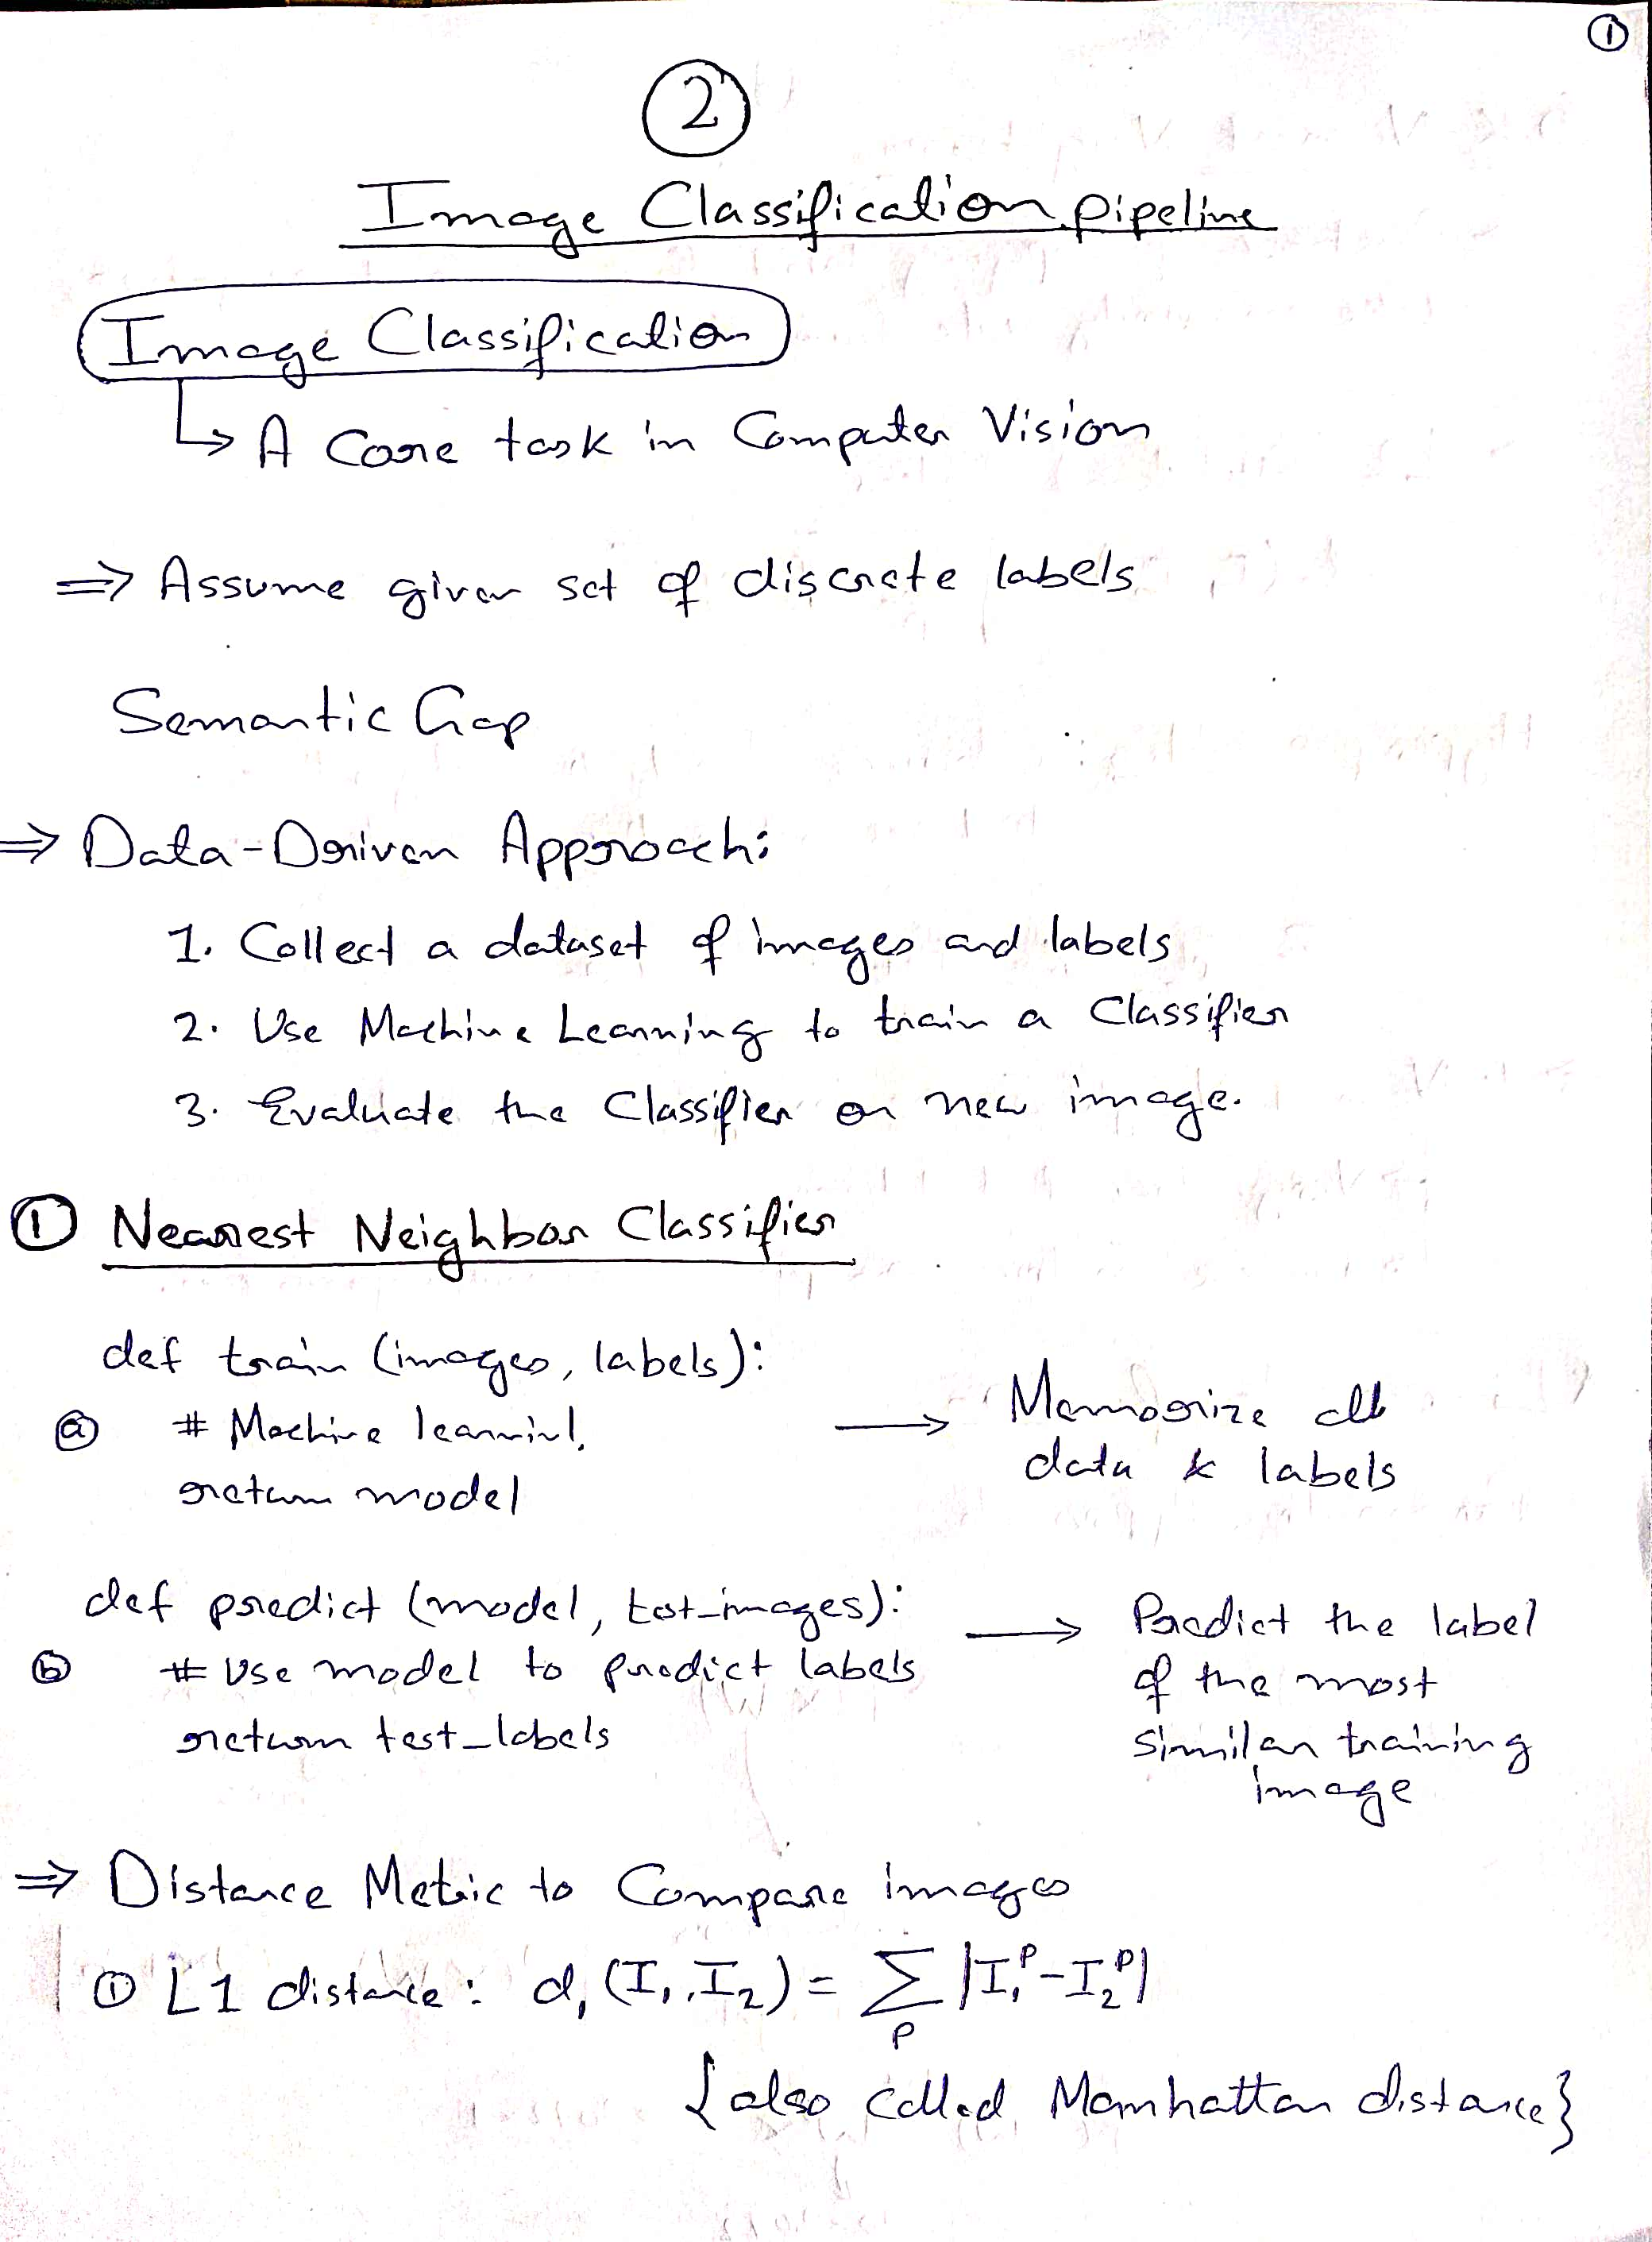 ①
②
Image Classification pipeline
Image Classification
↳ A Core task in Computer Vision
⇒ Assume given set of discrete labels
Semantic Gap
⇒ Data-Driven Approach:
1. Collect a dataset of images and labels
2. Use Machine Learning to train a Classifier
3. Evaluate the Classifier on new image.
① Nearest Neighbor Classifier
def train (images, labels):
ⓐ # Machine learninl.
return model
⟶ Memorize all
data & labels
def predict (model, test_images):
ⓑ # Use model to predict labels
return test_labels
⟶ Predict the label
of the most
similar training
image
⇒ Distance Metric to Compare images
① L1 distance: d₁ (I₁, I₂) = ∑ₚ |I₁ᵖ - I₂ᵖ|
{also called Manhattan distance}